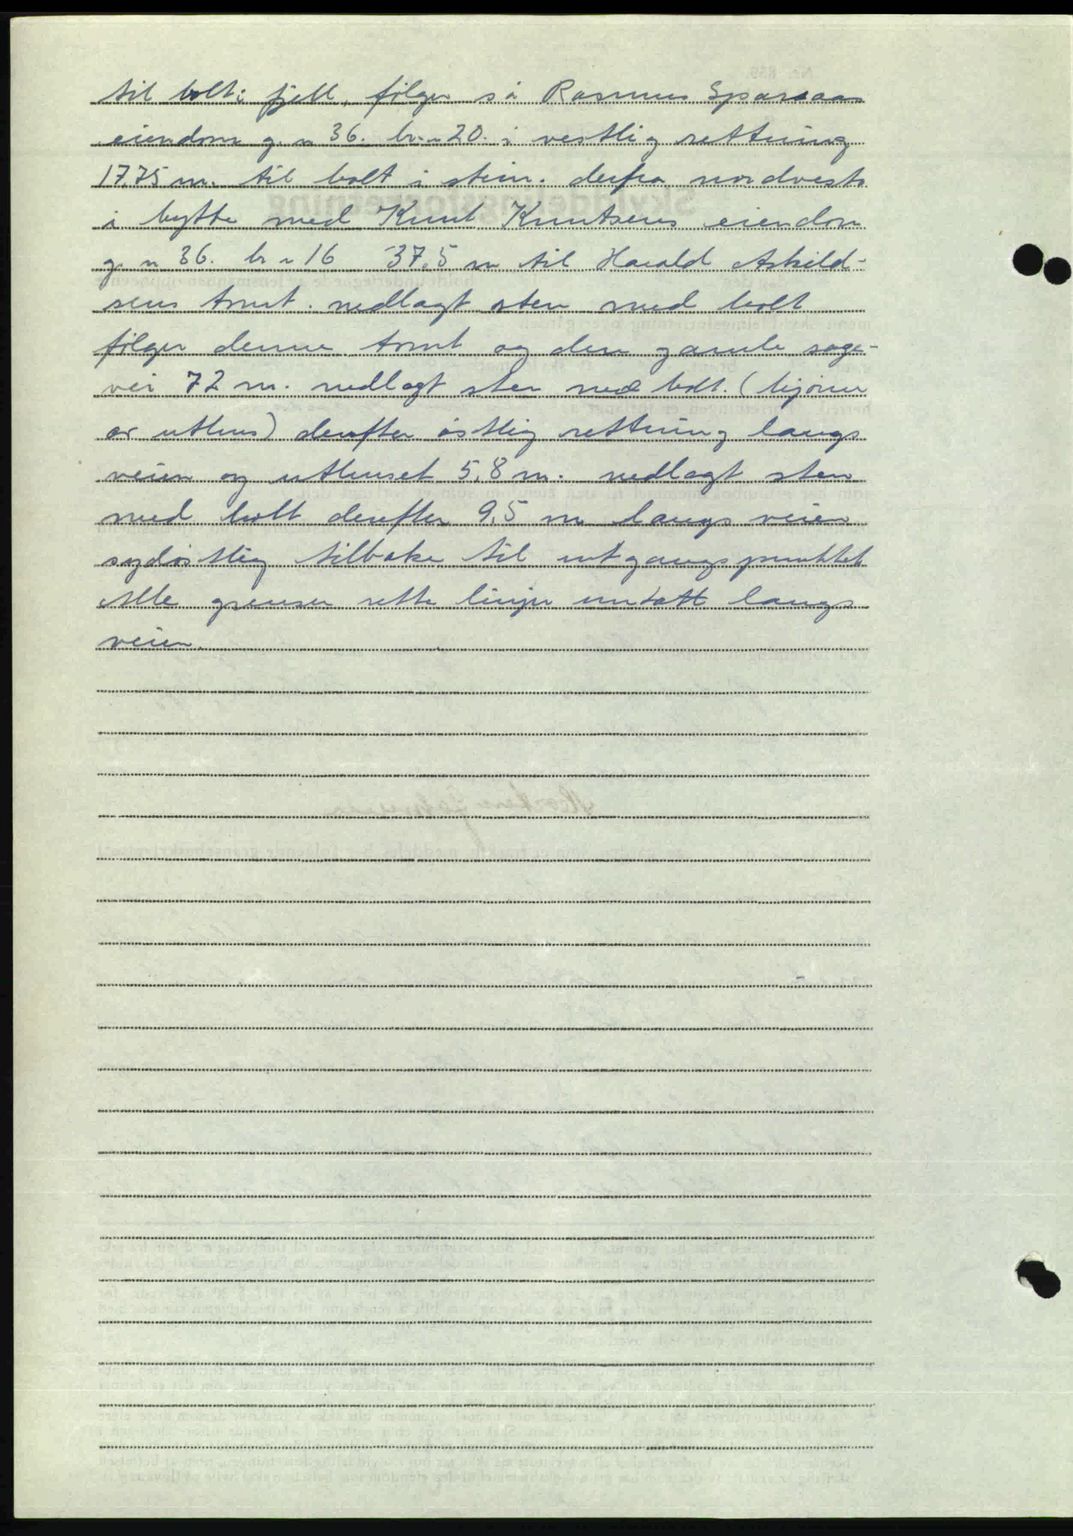 til bolt i fjell, følger så Rasmus
eiendom g. n 36. br. n 20. i vestlig rettning
17.75 m. til bolt i stein. derfra nordvest
i bytte med Knut Knutsens eiendom
g. n 36. br n 16 37,5 m til Harald Askild-
sens tomt. nedlagt sten med bolt
følger denne tomt og den gamle sage-
vei 72 m. nedlagt sten med bolt. (hjørne
av uthus) derefter østlig rettning langs
veien og uthuset 5,8 m. nedlagt sten
med bolt derefter 9,5 m langs veien
sydøstlig tilbake til utgangspunktet
Alle grenser rette linjer untatt langs
veien.